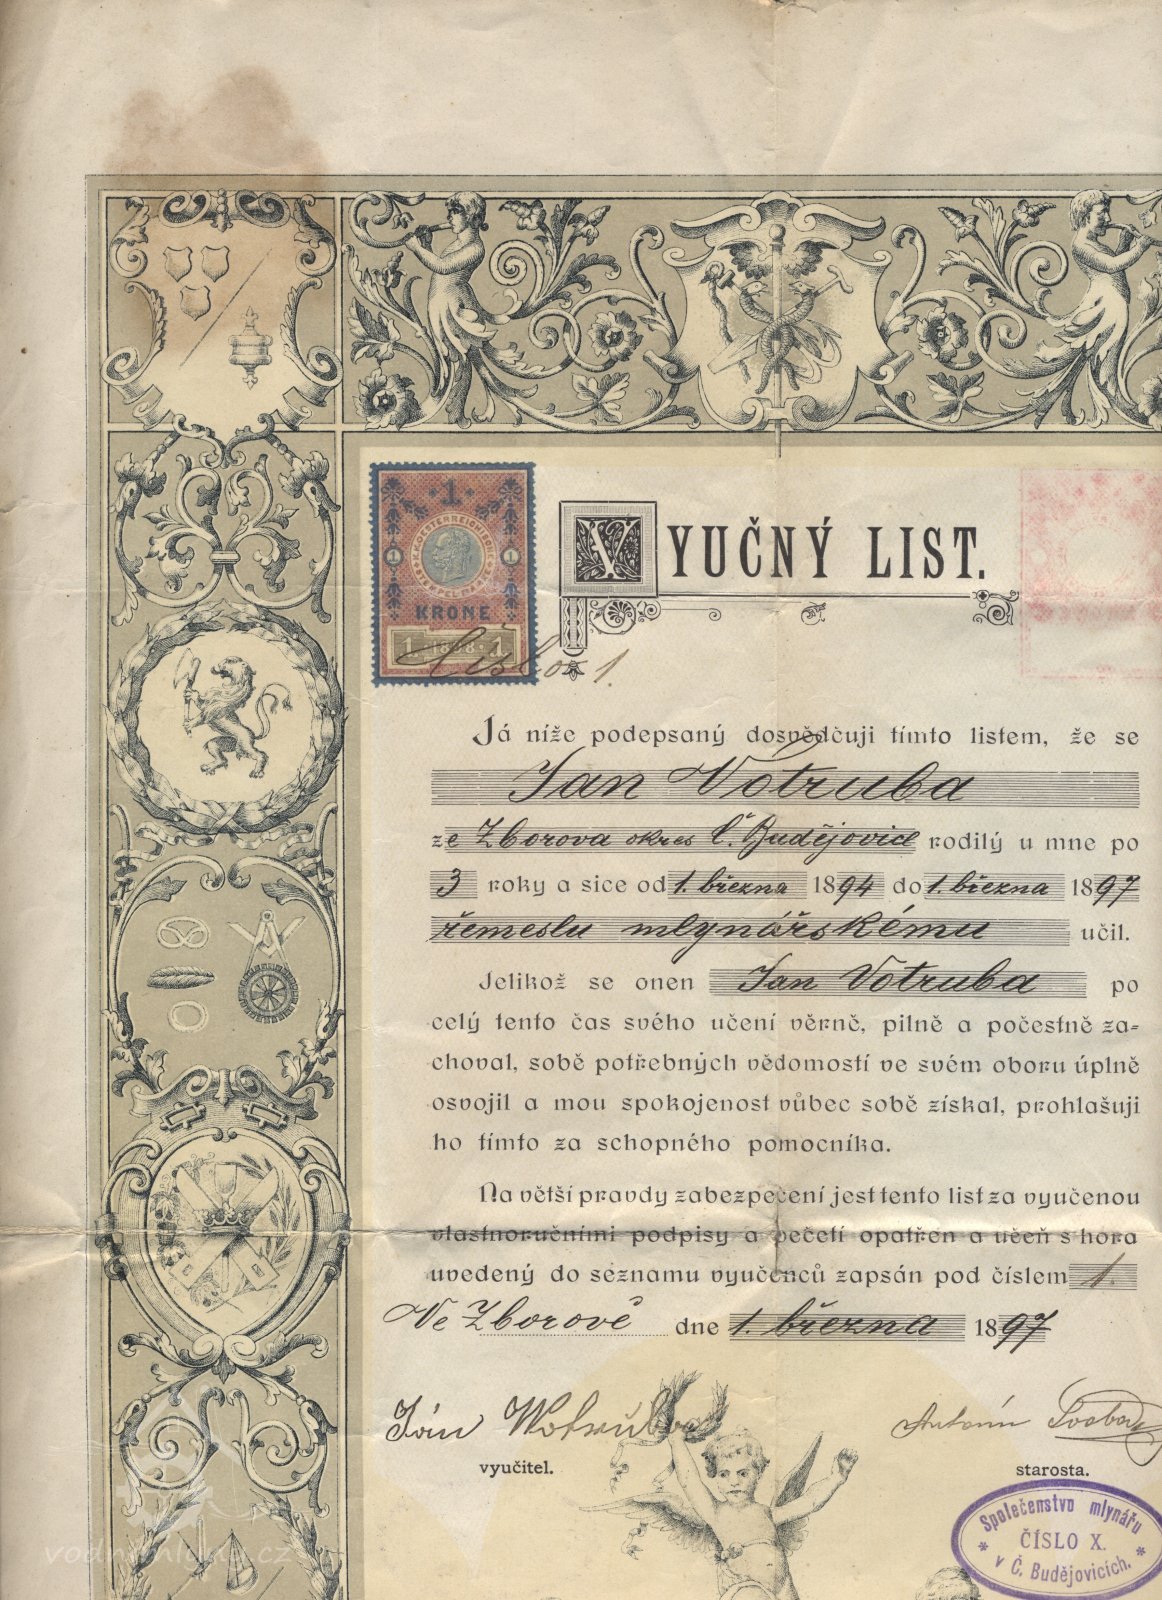 1
K.K. OESTERREICHISCHE
STEMPELMARKE
1 1
KRONE
1 1898 1
Číslo 1.
VYUČNÝ LIST.
Já níže podepsaný dosvědčuji tímto listem, že se
Jan Votruba
ze Zborova okres Č. Budějovice rodilý u mne po
3 roky a sice od 1. března 1894 do 1. března 1897
řemeslu mlynářskému učil.
Jelikož se onen Jan Votruba po
celý tento čas svého učení věrně, pilně a počestně za-
choval, sobě potřebných vědomostí ve svém oboru úplně
osvojil a mou spokojenost vůbec sobě získal, prohlašuji
ho tímto za schopného pomocníka.
Na větší pravdy zabezpečení jest tento list za vyučenou
vlastnoručními podpisy a pečetí opatřen a učeň s hora
uvedený do seznamu vyučenců zapsán pod číslem 1.
Ve Zborově dne 1. března 1897
Ján Wotruba
vyučitel.
Antonín
starosta.
Společenstvo mlynářů
ČÍSLO X.
* v Č. Budějovicích. *
vodnimlyny.cz